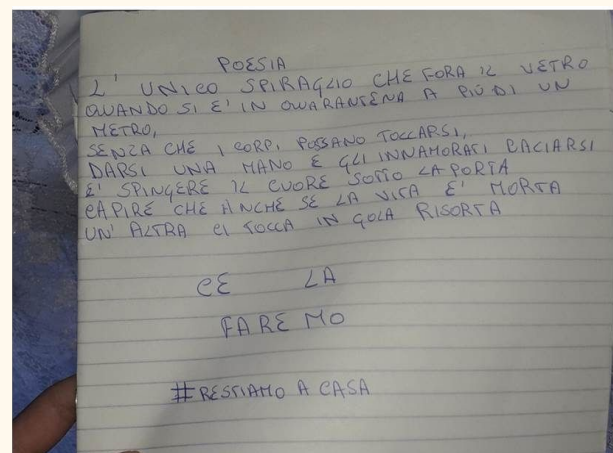 POESIA
L' UNICO SPIRAGLIO CHE FORA IL VETRO
QUANDO SI E' IN QUARANTENA A PIÙ DI UN
METRO,
SENZA CHE I CORPI POSSANO TOCCARSI,
DARSI UNA MANO E GLI INNAMORATI BACIARSI
E' SPINGERE IL CUORE SOTTO LA PORTA
CAPIRE CHE ANCHE SE LA VITA E' MORTA
UN' ALTRA CI TOCCA IN GOLA RISORTA
CE LA
FAREMO
#RESTIAMO A CASA